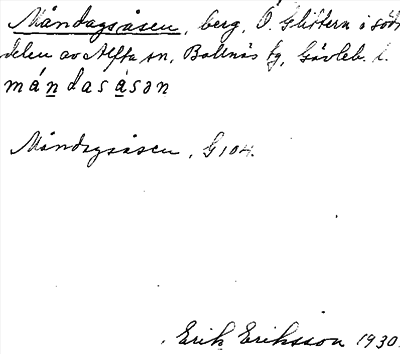 Måndagsåsen, berg, Ö. Glittern i söd-
delen av Alfta sn, Bollnäs tg, Gävleb. l.
mándasåsən
Måndagsåsen, G 104.
Erik Eriksson 1930.